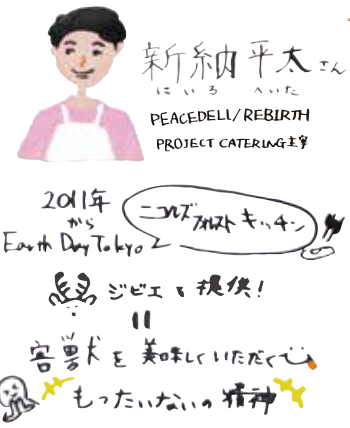 新納平太さん
にいろ へいた
PEACEDELI/REBIRTH
PROJECT CATERING主宰
2011年
から
Earth Day Tokyo
ニコルズ
フォレスト キッチン
ジビエを提供!
=
害獣を美味しくいただく
もったいないの精神